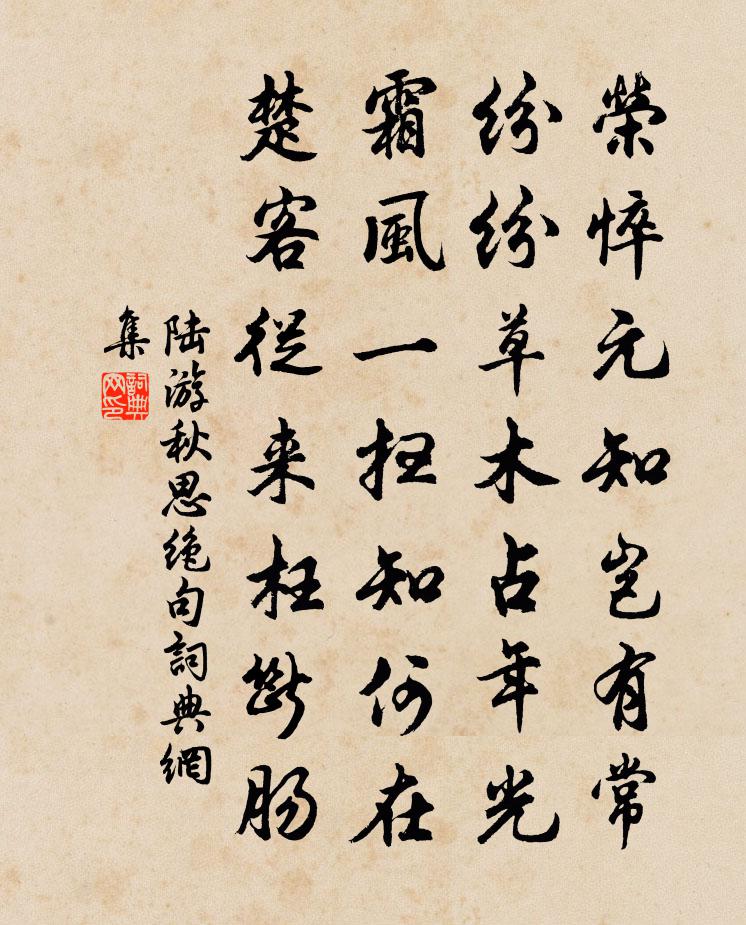 榮悴元知豈有常
紛紛草木占年光
霜風一掃知何在
楚客從来枉斷腸
陸游秋思絶句詞典網
集
詞典网印